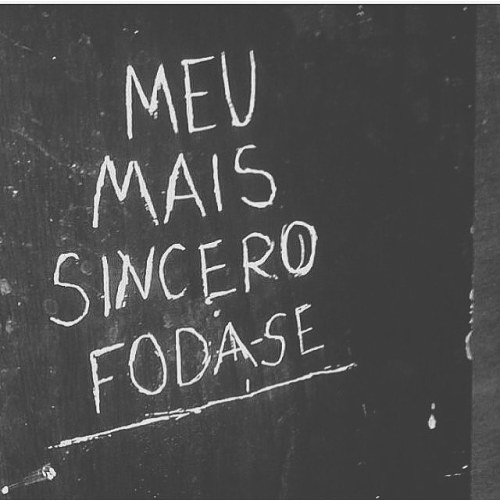 MEU
MAIS
SINCERO
FODA-SE